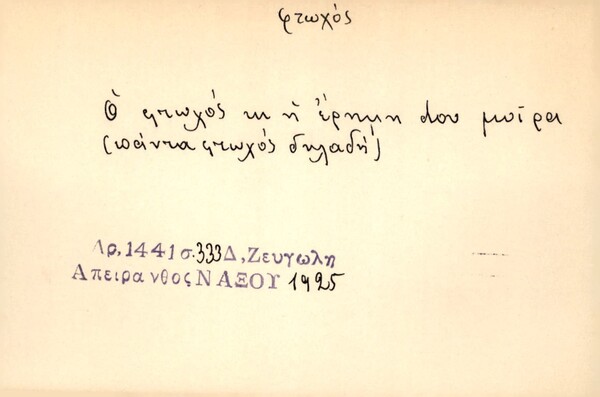 φτωχός
Ὁ φτωχός κι ἡ ἔρημη του μοῖρα
(πάντα φτωχός δηλαδή)
Αρ, 1441 σ. 333 Δ, Ζευγωλη
Απειρανθος ΝΑΞΟΥ 1925